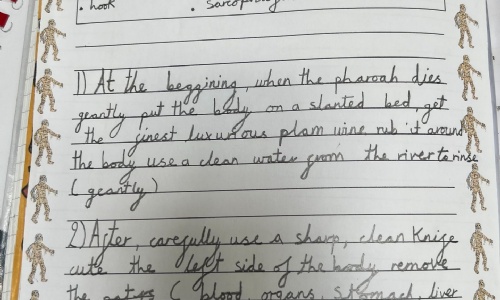 • hook
• Sarcophag
1) At the beggining, when the pharoah dies
geantly put the body on a slanted bed, get
the finest luxurious plam wine rub it around
the body use a clean water from the river to rinse
( geantly)
2) After, carefully use a sharp, clean Knife
cute the left side of the body remove
the ( blood, organs, stomach, liver